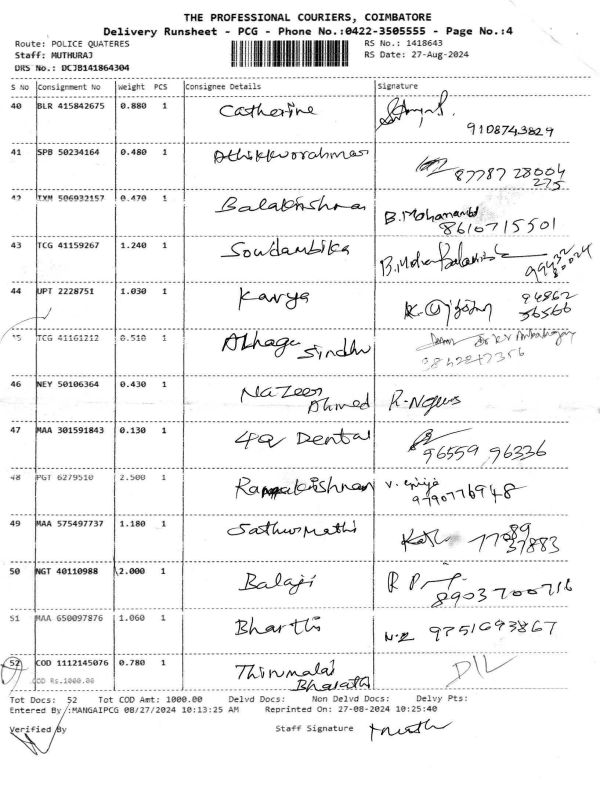 THE PROFESSIONAL COURIERS, COIMBATORE
Delivery Runsheet - PCG - Phone No.:0422-3505555 - Page No.:4
Route: POLICE QUATERES RS No.: 1418643
Staff: MUTHURAJ RS Date: 27-Aug-2024
DRS No.: DCJB141864304
S No Consignment No Weight PCS Consignee Details Signature
40 BLR 415842675 0.880 1 Catherine
9108743829
41 SPB 50234164 0.480 1
87787 28004
275
42 IXM 506932157 0.470 1 Balakrishnan B.Mohanambl
8610715501
43 TCG 41159267 1.240 1 Soudambika
44 UPT 2228751 1.030 1 Kavya 94862
36566
45 TCG 41161212 0.510 1 Alhagu Sindhu
46 NEY 50106364 0.430 1 Nazeer
Ahmed
47 MAA 301591843 0.130 1 42 Dental
96559 96336
48 PGT 6279510 2.500 1 Ramakrishnan
9790776948
49 MAA 575497737 1.180 1 Sathurmathi
77089
37883
50 NGT 40110988 2.000 1 Balaji
8903700716
51 MAA 650097876 1.060 1 Bharthi 9751093867
52 COD 1112145076 0.780 1 Thirumalai D/L
COD Rs.1000.00 Bharathi
Tot Docs: 52 Tot COD Amt: 1000.00 Delvd Docs: Non Delvd Docs: Delvy Pts:
Entered By :MANGAIPCG 08/27/2024 10:13:25 AM Reprinted On: 27-08-2024 10:25:40
Verified By Staff Signature